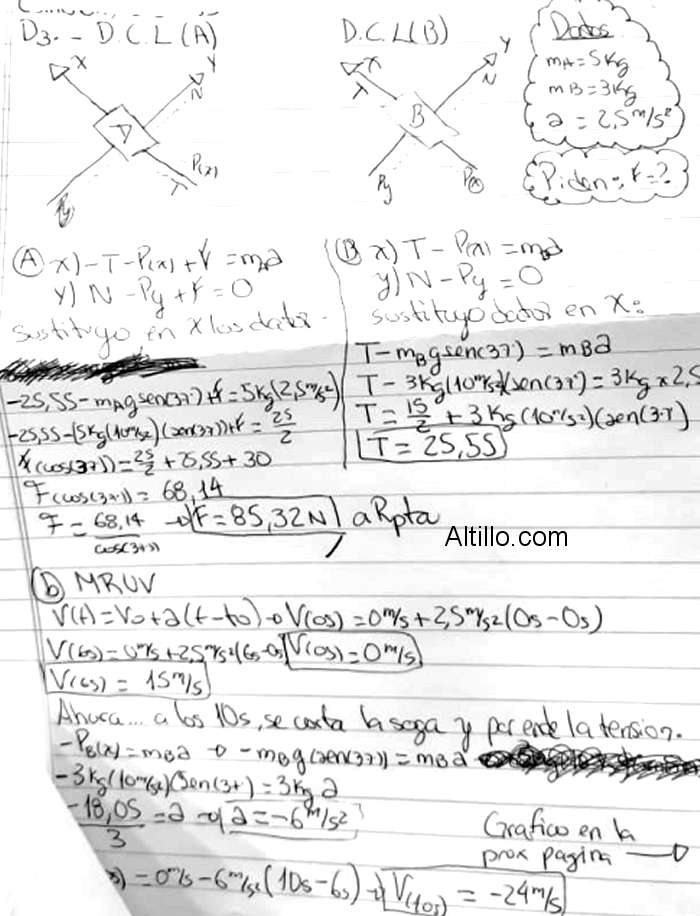 D3.- D.C.L(A)
X
Y
N
D
P(x)
T
Py
D.C.L(B)
X
Y
T
N
B
Py
P(x)
Datos
mA=5Kg
mB=3Kg
a=2,5m/s²
Piden: F=?
(A) X)-T-P(x)+F=mAa
Y) N-Py+F=0
sustituyo en X los datos.
-25,55-mAgsen(37)+F=5Kg(2,5m/s²)
-25,55-(5Kg(10m/s2)(sen(37))+F=25/2
F(cos(37))=25/2+25,55+30
F(cos(37))=68,14
F=68,14/cos(37) → F=85,32N a Rpta
(B) X) T-P(x)=mBa
Y) N-Py=0
sustituyo datos en X:
T-mBgsen(37)=mBa
T-3Kg(10m/s²)(sen(37))=3Kg×2,5
T=15/2+3Kg(10m/s²)(sen(37)
T=25,55
Altillo.com
(b) MRUV
V(t)=Vo+a(t-to)→V(0s)=0m/s+2,5m/s2(0s-0s)
V(6s)=0m/s+2,5m/s²(6s-0s) V(0s)=0m/s
V(6s)=15m/s
Ahora... a los 10s, se corta la soga y por ende la tension.
-PB(x)=mBa → -mBg(sen(37))=mBa
-3Kg(10m/s²)(sen(37)=3Kga
-18,05/3=a → a=-6m/s²
Grafico en la
prox pagina →
s)=0m/s-6m/s²(10s-6s) → V(10s)=-24m/s